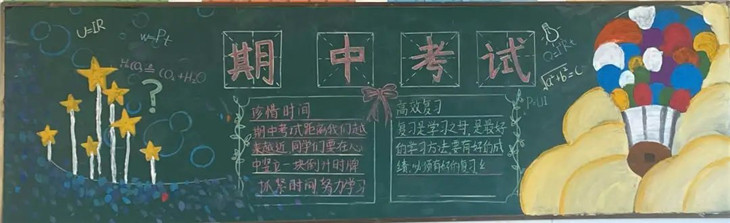 期中考试
U=IR
W=Pt
H₂CO₃ ≜ CO₂+H₂O
?
珍惜时间
期中考试距离我们越
来越近,同学们要在心
中竖立一块倒计时牌
抓紧时间努力学习
高效复习
复习是学习之母,是最好
的学习方法,要有好的成
绩,必须有好的复习
P=UI